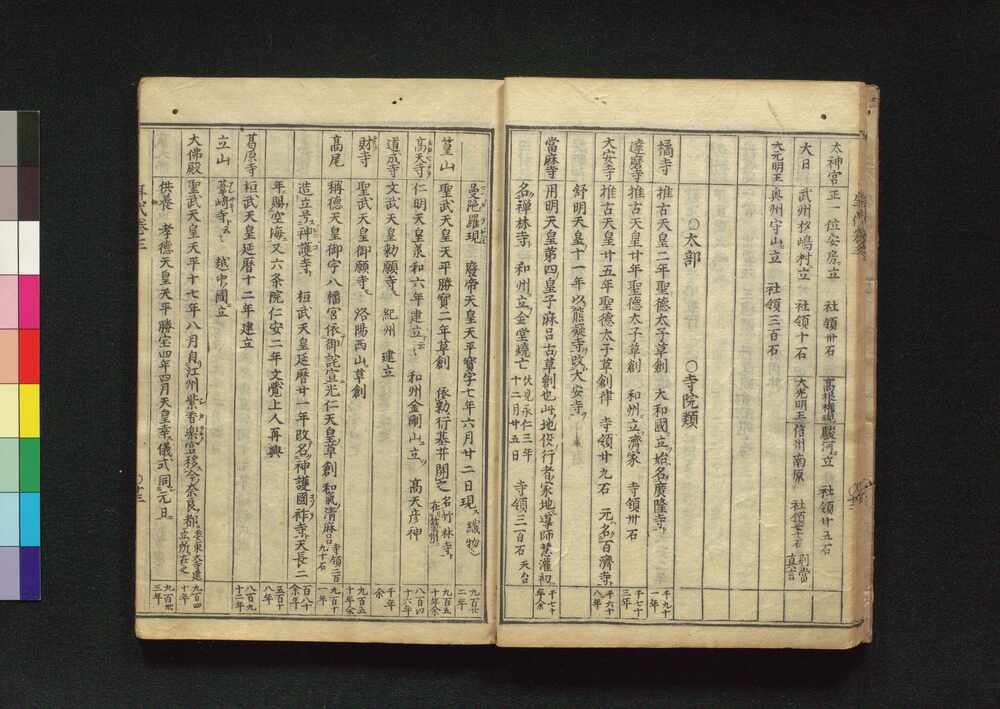 太神宮 正一位安房立 社領卅石 高根権現 駿河立 社領廿五石
大日 武州杉嶋村立 社領十石 大光明王 信州南原 社領 石 別當 真言
大元明王 奥州守山立 社領三百石
〇太部 〇寺院類
橘寺 推古天皇二年聖德太子草創 大和國立 始名廣隆寺 千九十一年
達磨寺 推古天皇廿年聖德太子草創 和州立 濟家 寺領卅石 千七十三年
大安寺 推古天皇廿五年聖德太子草創律 寺領廿九石 元名百濟寺 千六十八年
舒明天皇十一年以熊凝寺改大安寺
當麻寺 用明天皇第四皇子麻呂古草創也 此地役行者家地 導師慧灌初 千七十年余
名禅林寺 和州立 金堂燒亡 伏見永仁三年十二月廿五日 寺領三百石 天台
曼陀羅現 廢帝天皇天平寳字七年六月廿二日現 織物 九百廿二年
菫山 聖武天皇天平勝寳二年草創 依勅行基并開之 名竹林寺 在 州 九百五十年余
高天寺 仁明天皇承和六年建立 和州金剛山立 高天彦神 八百四十六年
道成寺 文武天皇勅願寺 紀州 建立 千年余
財寺 聖武天皇御願寺 洛陽西山草創 九百五十年余
高尾 稱德天皇御宇八幡宮依御詫宣光仁天皇草創 和氣清麻呂 寺領二百九十石 九百十一年
造立号神護寺 桓武天皇延暦廿一年改名神護國祚寺 天長二 百八十余年
年賜空海又六条院仁安二年文覺上人再興 五百十八年
葛原寺 桓武天皇延暦十二年建立 八百九十二年
立山 蘆峅寺 越中國立
大佛殿 聖武天皇天平十七年八月自江州紫香樂宮移今奈良都 東大寺建立所在之 九百四十年
供養 孝德天皇天平勝宝四年四月天皇幸儀式同元日 九百卅三年